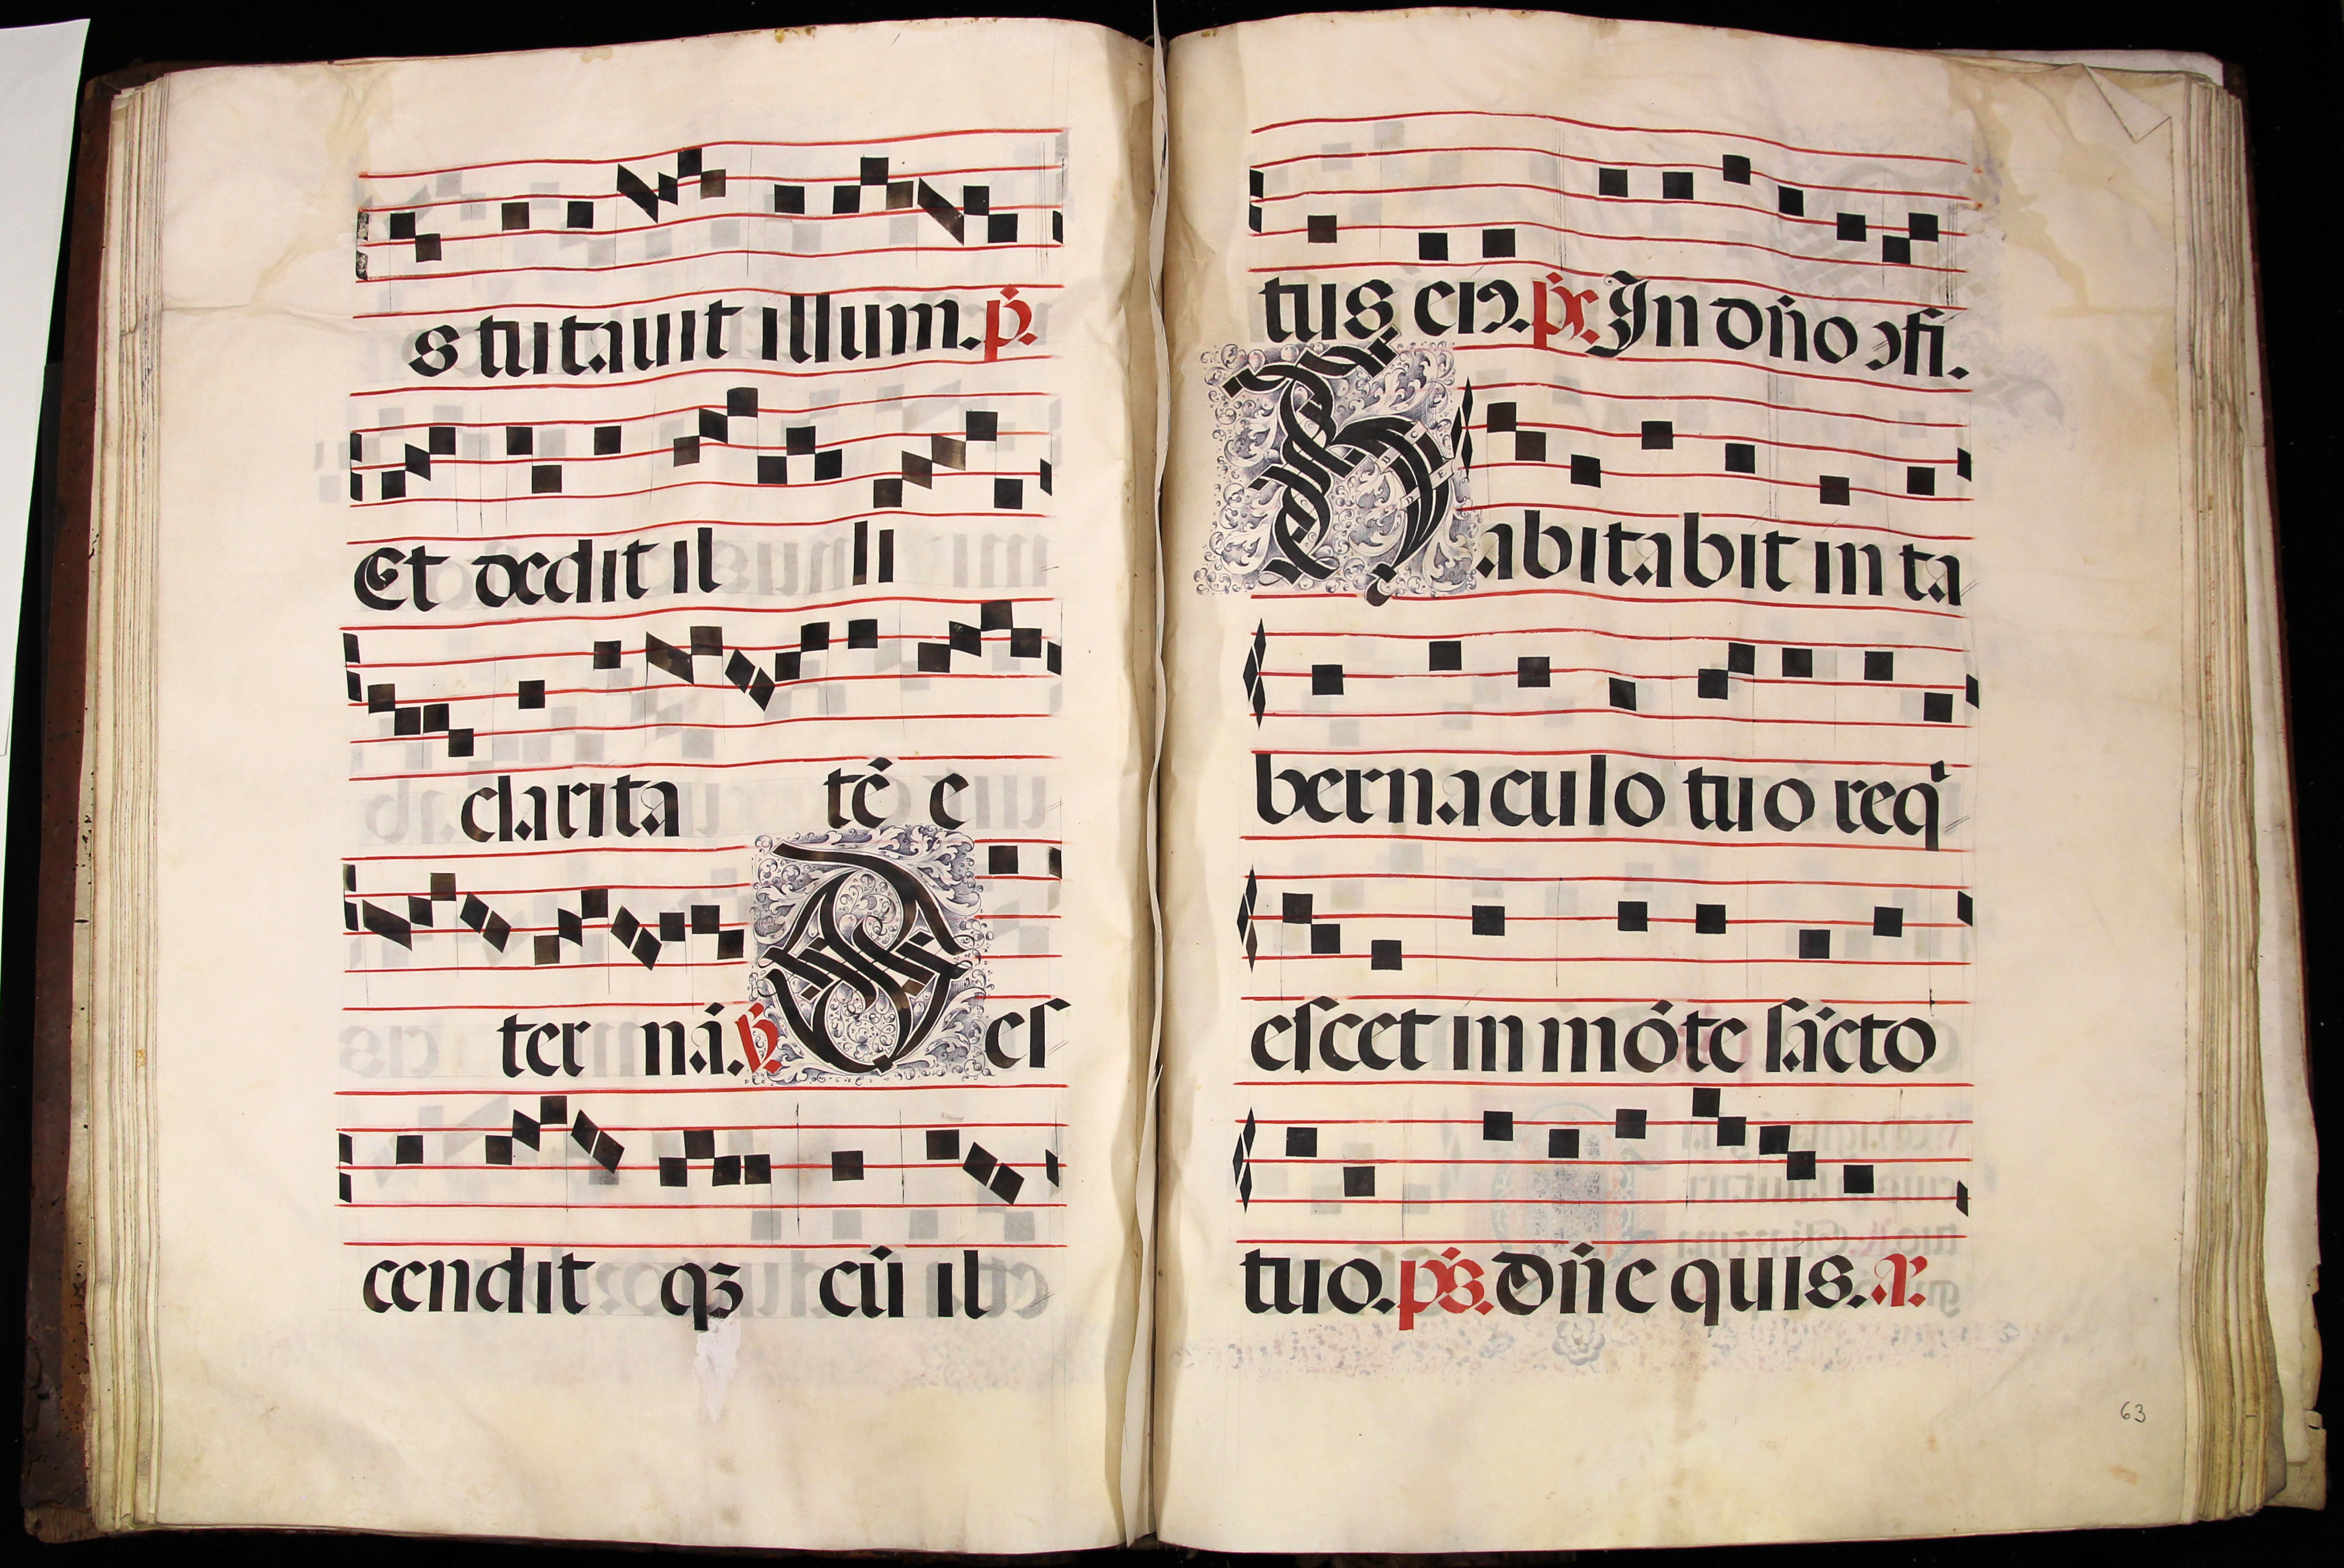 s tutavit illum. p̄.
Et dedit il li
clarita tē e
ter nā. ℟. Des
cendit qꝫ cū il
tus eiꝰ. ps̄. In dn̄o ↄfi.
Habitabit in ta
bernaculo tuo req̇
escet in mōte sācto
tuo. ps̄. Dn̄e quis. a.
63